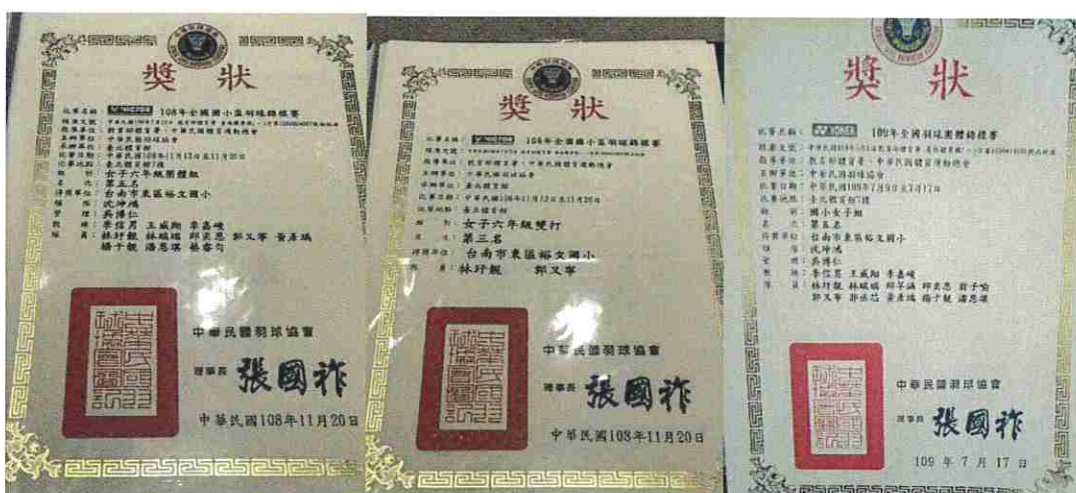 獎狀
比賽名稱：VICTOR 108年全國國小盃羽球錦標賽
指導單位：教育部體育署、中華民國體育運動總會
主辦單位：中華民國羽球協會
承辦單位：臺北體育館
比賽日期：中華民國108年11月12日至11月20日
比賽地點：臺北體育館
組別：女子六年級團體組
名次：第五名
得獎單位：台南市東區裕文國小
領隊：沈坤鴻
管理：吳博仁
教練：李信男 王威翔 李嘉峻
隊員：林玗靚 林 邱奕恩 郭又寧
楊千靚 潘恩琪
中華民國羽球協會
理事長 張國祚
中華民國108年11月20日
獎狀
比賽名稱：VICTOR 108年全國國小盃羽球錦標賽
指導單位：教育部體育署、中華民國體育運動總會
主辦單位：中華民國羽球協會
承辦單位：臺北體育館
比賽日期：中華民國108年11月12日至11月20日
比賽地點：臺北體育館
組別：女子六年級雙打
名次：第三名
得獎單位：台南市東區裕文國小
隊員：林玗靚 郭又寧
中華民國羽球協會
理事長 張國祚
中華民國108年11月20日
獎狀
比賽名稱：YONEX 109年全國羽球團體錦標賽
指導單位：教育部體育署、中華民國體育運動總會
主辦單位：中華民國羽球協會
比賽日期：中華民國109年7月9日至7月17日
比賽地點：臺北體育館7樓
組別：國小女子組
名次：第五名
得獎單位：台南市東區裕文國小
領隊：沈坤鴻
管理：吳博仁
教練：李信男 王威翔 李嘉峻
隊員：林玗靚 邱奕恩
郭又寧 楊千靚 潘恩琪
中華民國羽球協會
理事長 張國祚
109年7月17日